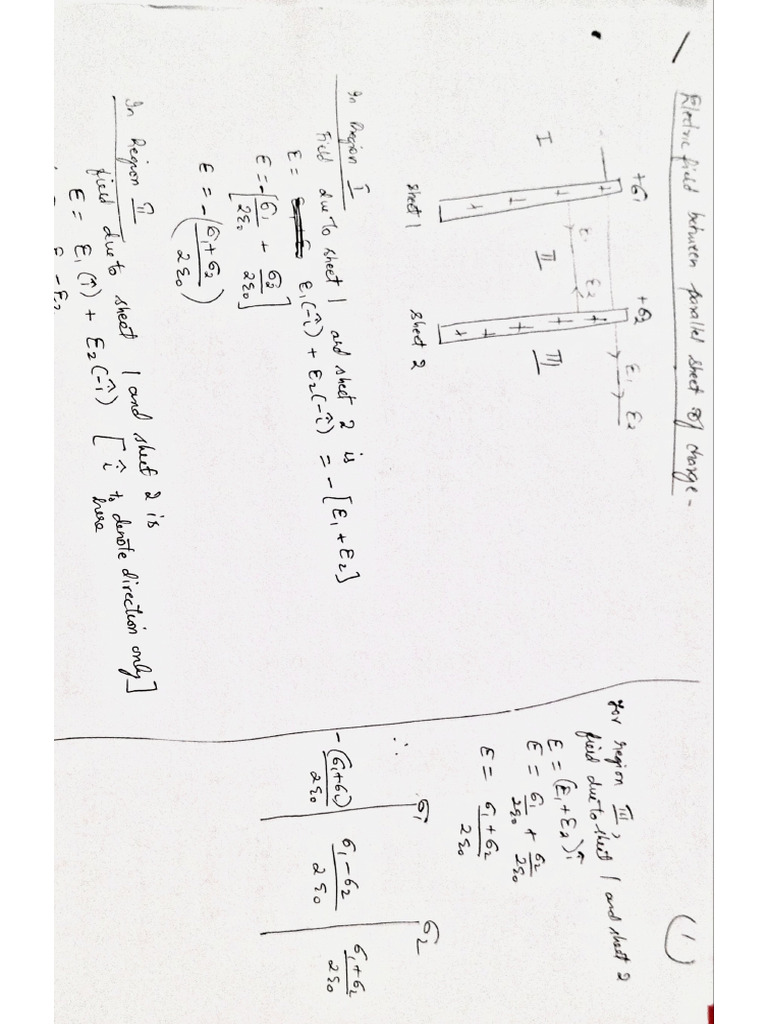 Electric field between parallel sheet of charge-
+σ1
+σ2
E1 E2
E1 E2
I
II
III
+ + + +
+ + + + +
sheet 1
sheet 2
In Region I
Field due to sheet 1 and sheet 2 is
E = E1(-î) + E2(-î) = -[E1+E2]
E = -[σ1/2ε0 + σ2/2ε0]
E = -(σ1+σ2/2ε0)
In Region II
field due to sheet 1 and sheet 2 is
E = E1(î) + E2(-î) [î to denote direction only]
here
E1 - E2
(1)
for region III,
field due to sheet 1 and sheet 2
E = (E1+E2)î
E = σ1/2ε0 + σ2/2ε0
E = σ1+σ2/2ε0
∴
σ1
σ2
-(σ1+σ2)/2ε0
σ1-σ2/2ε0
σ1+σ2/2ε0